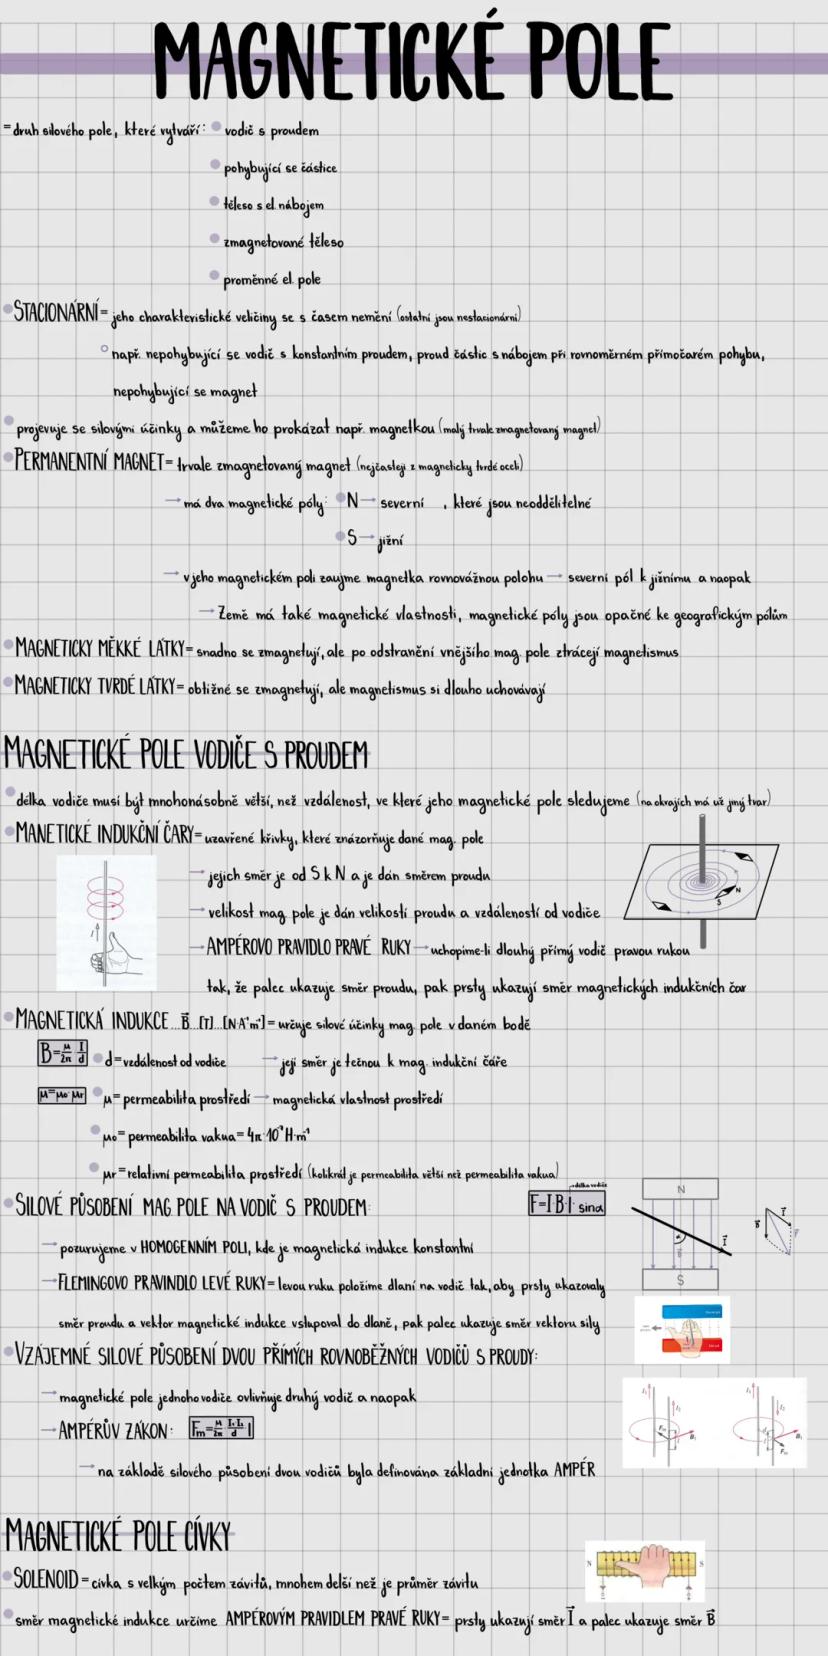 MAGNETICKÉ POLE
= druh silového pole, které vytváří: vodič s proudem
pohybující se částice
těleso s el. nábojem
zmagnetované těleso
proměnné el. pole
STACIONÁRNÍ = jeho charakteristické veličiny se s časem nemění (ostatní jsou nestacionární)
např. nepohybující se vodič s konstantním proudem, proud částic s nábojem při rovnoměrném přímočarém pohybu,
nepohybující se magnet
projevuje se silovými účinky a můžeme ho prokázat např. magnetkou (malý trvale zmagnetovaný magnet)
PERMANENTNÍ MAGNET = trvale zmagnetovaný magnet (nejčastěji z magneticky tvrdé oceli)
→ má dva magnetické póly: N → severní , které jsou neoddělitelné
S → jižní
→ v jeho magnetickém poli zaujme magnetka rovnovážnou polohu → severní pól k jižnímu a naopak
→ Země má také magnetické vlastnosti, magnetické póly jsou opačné ke geografickým pólům
MAGNETICKY MĚKKÉ LÁTKY = snadno se zmagnetují, ale po odstranění vnějšího mag. pole ztrácejí magnetismus
MAGNETICKY TVRDÉ LÁTKY = obtížné se zmagnetují, ale magnetismus si dlouho uchovávají
MAGNETICKÉ POLE VODIČE S PROUDEM
délka vodiče musí být mnohonásobně větší, než vzdálenost, ve které jeho magnetické pole sledujeme (na okrajích má už jiný tvar)
MANETICKÉ INDUKČNÍ ČÁRY = uzavřené křivky, které znázorňuje dané mag. pole
→ jejich směr je od S k N a je dán směrem proudu
→ velikost mag. pole je dán velikostí proudu a vzdáleností od vodiče
→ AMPÉROVO PRAVIDLO PRAVÉ RUKY → uchopíme-li dlouhý přímý vodič pravou rukou
tak, že palec ukazuje směr proudu, pak prsty ukazují směr magnetických indukčních čar
N
S
I
MAGNETICKÁ INDUKCE...B⃗...[T]...[N·A⁻¹·m⁻¹] = určuje silové účinky mag. pole v daném bodě
B = μ/2π I/d d = vzdálenost od vodiče → její směr je tečnou k mag. indukční čáře
μ = μ₀·μr μ = permeabilita prostředí → magnetická vlastnost prostředí
μ₀ = permeabilita vakua = 4π·10⁻⁷ H·m⁻¹
μr = relativní permeabilita prostředí (kolikrát je permeabilita větší než permeabilita vakua)
SILOVÉ PŮSOBENÍ MAG. POLE NA VODIČ S PROUDEM:
F = I·B·l·sinα → délka vodiče
→ pozurujeme v HOMOGENNÍM POLI, kde je magnetická indukce konstantní
→ FLEMINGOVO PRAVINDLO LEVÉ RUKY = levou ruku položíme dlaní na vodič tak, aby prsty ukazovaly
směr proudu a vektor magnetické indukce vstupoval do dlaně, pak palec ukazuje směr vektoru síly
N
α
B⃗
I⃗
S
B⃗
I⃗
F⃗
VZÁJEMNÉ SILOVÉ PŮSOBENÍ DVOU PŘÍMÝCH ROVNOBĚŽNÝCH VODIČŮ S PROUDY:
→ magnetické pole jednoho vodiče ovlivňuje druhý vodič a naopak
→ AMPÉRŮV ZÁKON: Fm = μ/2π I₁·I₂/d l
→ na základě silového působení dvou vodičů byla definována základní jednotka AMPÉR
I₁
I₂
Fm
B₁
I₁
I₂
B₁
Fm
MAGNETICKÉ POLE CÍVKY
SOLENOID = cívka s velkým počtem závitů, mnohem delší než je průměr závitu
směr magnetické indukce určíme AMPÉROVÝM PRAVIDLEM PRAVÉ RUKY = prsty ukazují směr I⃗ a palec ukazuje směr B⃗
N
S